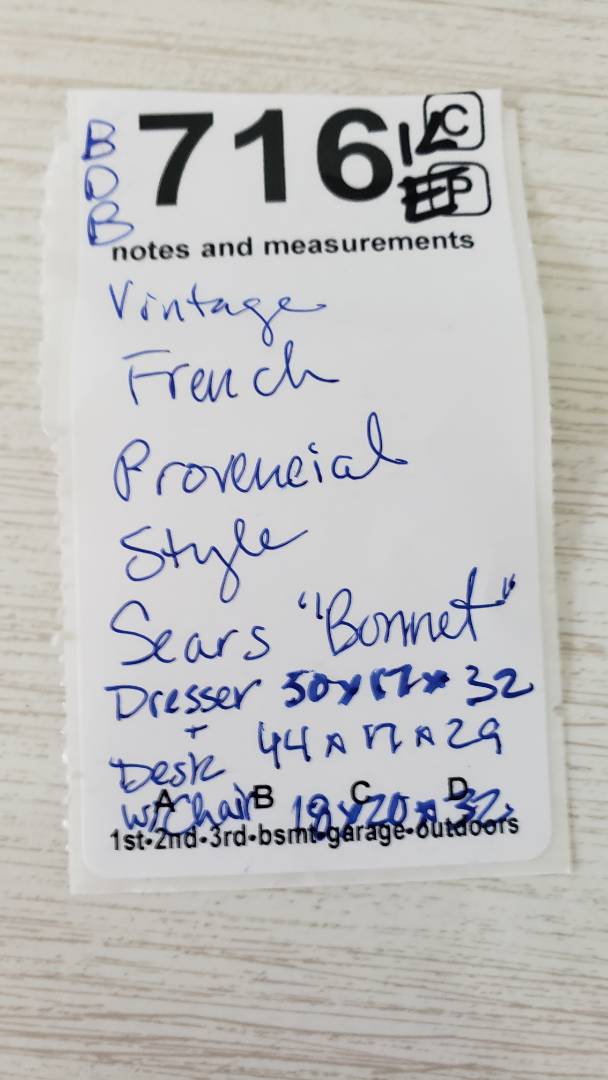 B
D
B
716 C
P
notes and measurements
Vintage
French
Provencial
Style
Sears "Bonnet"
Dresser 50x17x32
+
Desk 44x17x29
A B C D
w/Chair 18x20x32
1st•2nd•3rd•bsmt•garage•outdoors